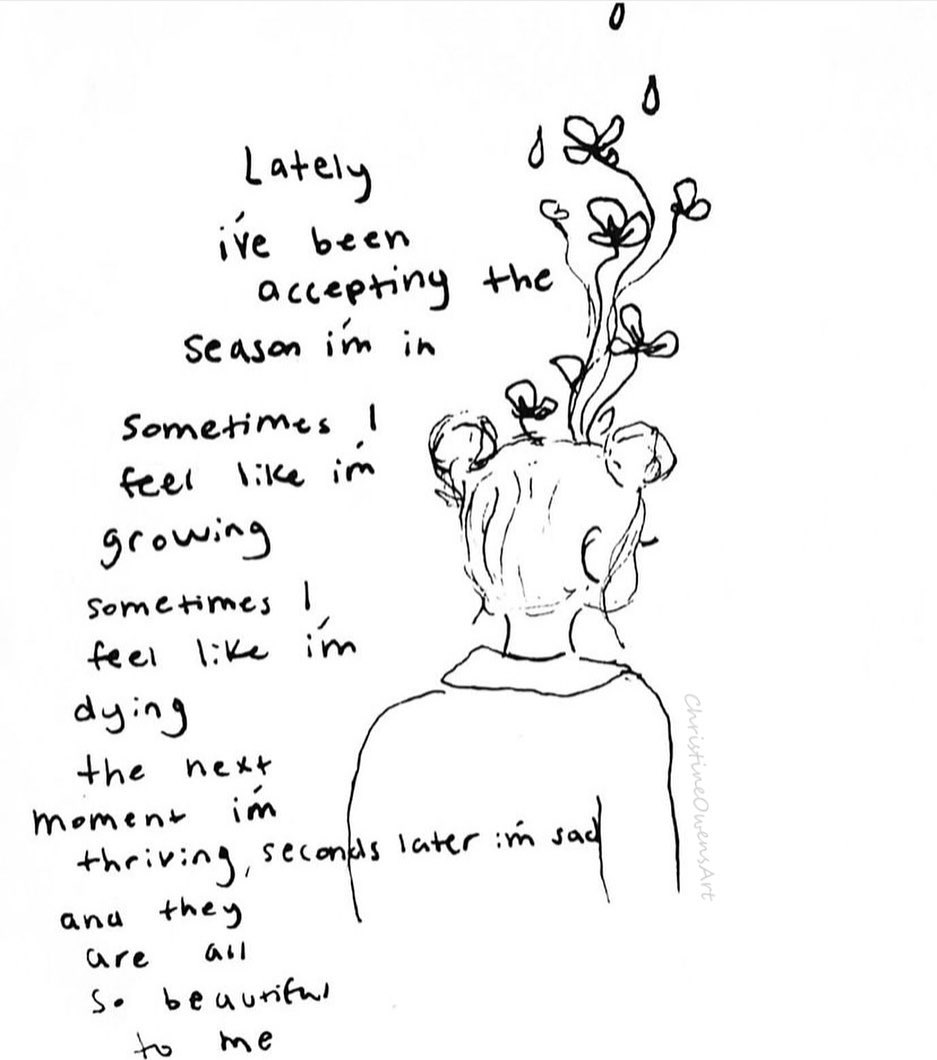 Lately
i've been
accepting the
season i'm in
sometimes I
feel like i'm
growing
sometimes I
feel like i'm
dying
the next
moment i'm
thriving, seconds later i'm sad
and they
are all
so beautiful
to me
ChristineOwensArt